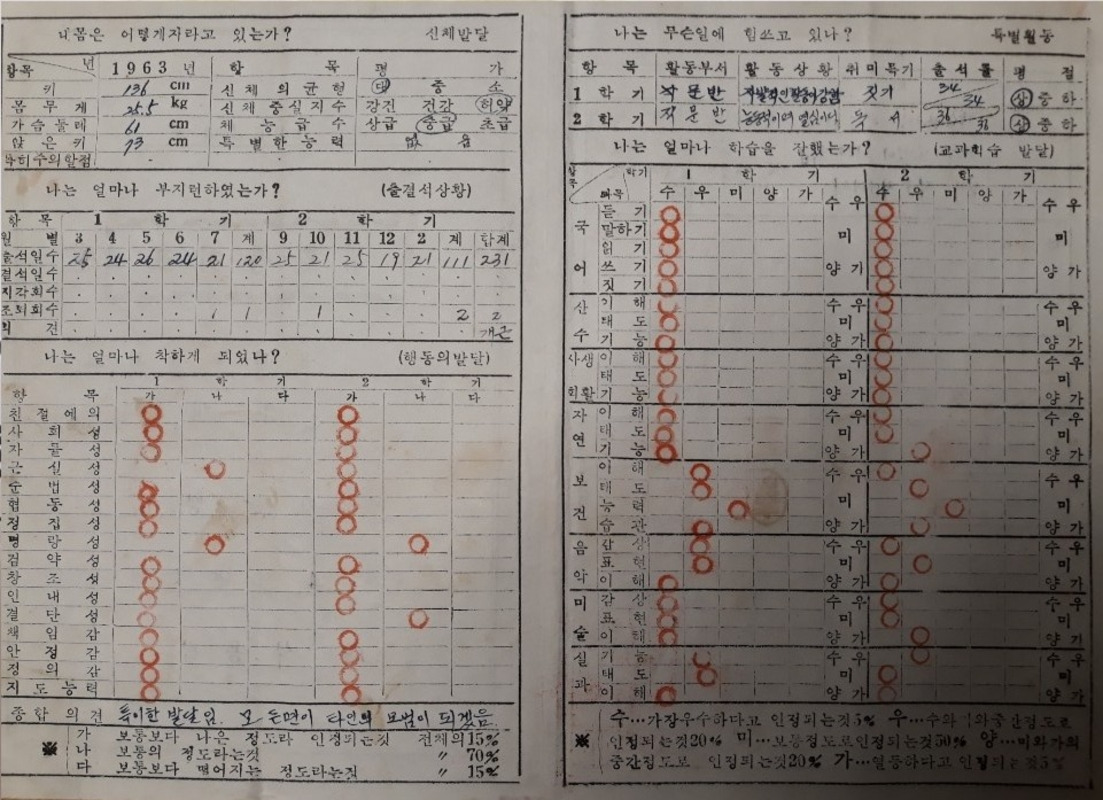 내몸은 어떻게자라고 있는가? 신체발달
항목 년 1963 년 항 목 평 가
키 136 cm 신체의 균형 대 중 소
몸무게 25.5 kg 신체 충실지수 강진 건강 허약
가슴둘레 61 cm 체능급수 상급 중급 초급
앉은키 73 cm 특별한능력 없 음
나는 얼마나 부지런하였는가? (출결석상황)
항목 1 학 기 2 학 기
월 별 3 4 5 6 7 계 9 10 11 12 2 계 합계
출석일수 25 24 26 24 21 120 25 21 25 19 21 111 231
결석일수 . . . . . . . . . . . . .
지각회수 . . . . . . . . . . . . .
조퇴회수 1 1 1 2 2
의 견 개근
나는 얼마나 착하게 되었나? (행동의발달)
1 학 기 2 학 기
항 목 가 나 다 가 나 다
친절예의
사회성
자률성
근실성
준법성
협동성
정직성
명랑성
검약성
창조성
인내성
결단성
책임감
안정감
정의감
지도능력
종합의견 특이한 발달임. 모든면이 타인의 모범이 되겠음.
가 보통보다 나은 정도라 인정되는것 전체의15%
※ 나 보통의 정도라는것 〃 70%
다 보통보다 떨어지는 정도라는것 〃 15%
나는 무슨일에 힘쓰고 있나? 특별활동
항 목 활동부서 활동상황 취미특기 출석률 평 정
1 학 기 작문반 짓기 34 34 상 중 하
2 학 기 작문반 독서 36 36 상 중 하
나는 얼마나 학습을 잘했는가? (교과학습 발달)
학기 1 학 기 2 학 기
과목 수 우 미 양 가 수 우 미 양 가
국어 듣기 수 우 수 우
말하기 미 미
읽기
쓰기 양 가 양 가
짓기
산수 이해 수 우 수 우
태도 미 미
기능 양 가 양 가
사회생활 이해 수 우 수 우
태도 미 미
기능 양 가 양 가
자연 이해 수 우 수 우
태도 미 미
기능 양 가 양 가
보건 이해 수 우 수 우
태도
능력 미 미
습관 양 가 양 가
음악 감상 수 우 수 우
표현 미 미
이해 양 가 양 가
미술 감상 수 우 수 우
표현 미 미
이해 양 가 양 가
실과 기능 수 우 수 우
태도 미 미
이해 양 가 양 가
수…가장우수하다고 인정되는것5% 우…수와미와중간정도로
※ 인정되는것20% 미…보통정도로인정되는것50% 양…미와가의
중간정도로 인정되는것20% 가…열등하다고 인정되는것5%